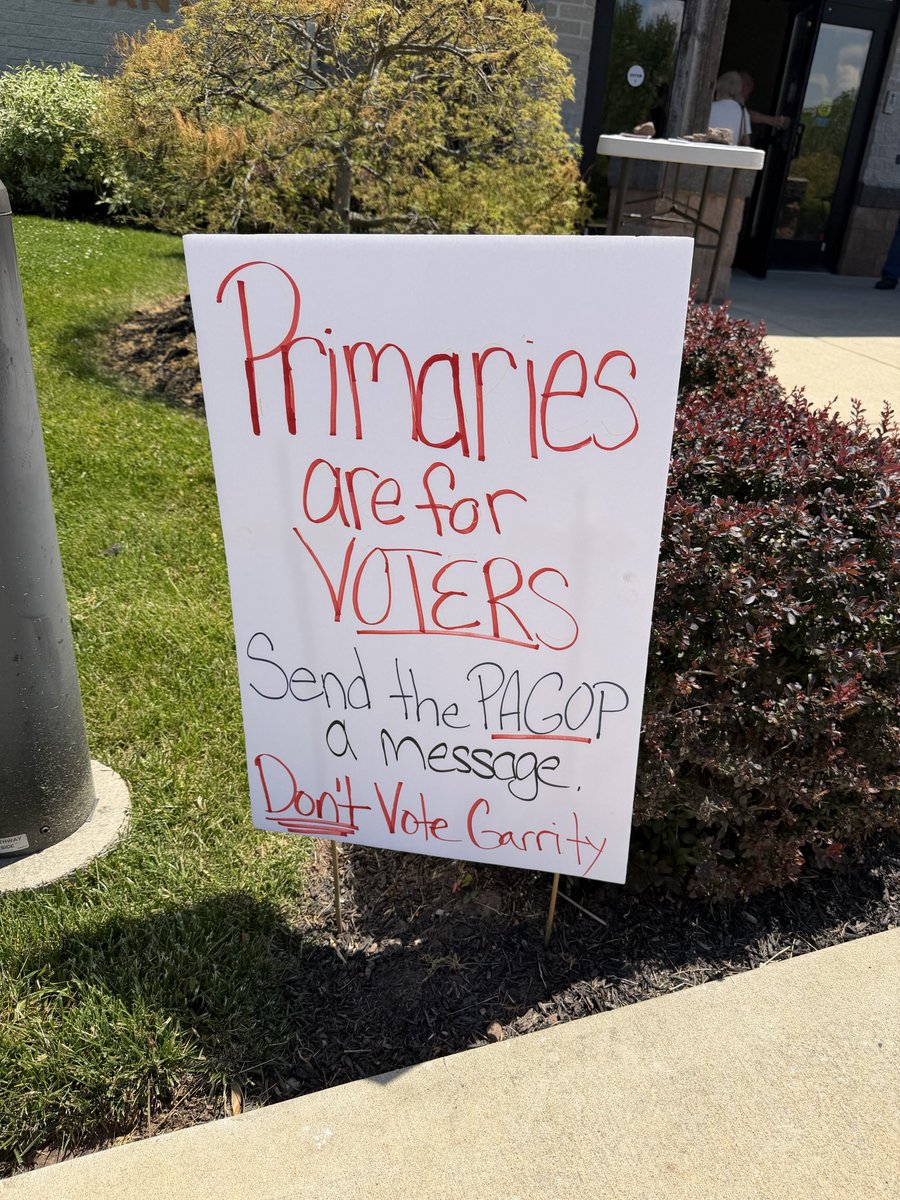 Primaries
are for
VOTERS
Send the PAGOP
a message.
Don't Vote Garrity